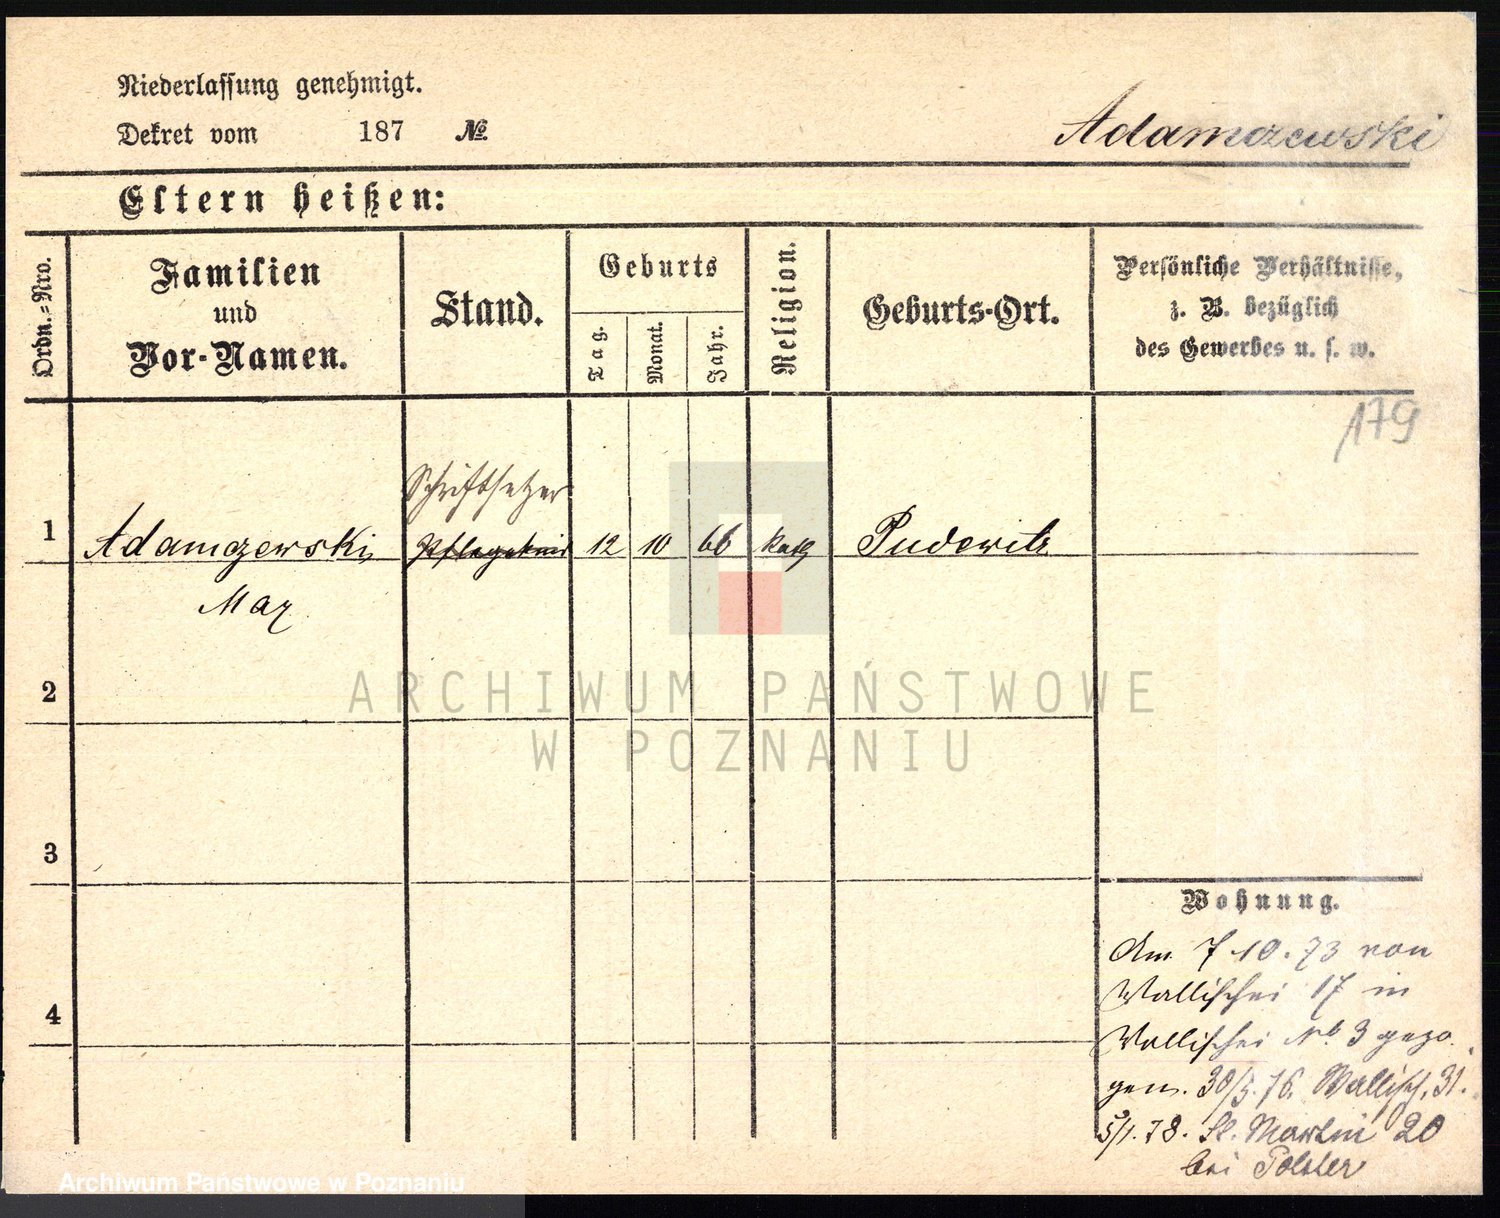 Niederlassung genehmigt.
Dekret vom 187 №
Adamczewski
Eltern heißen:
Ordn.-Nro.
Familien
und
Vor-Namen.
Stand.
Geburts
Tag.
Monat.
Jahr.
Religion.
Geburts-Ort.
Persönliche Verhältnisse,
z. B. bezüglich
des Gewerbes u. s. w.
179
Schriftsetzer
1 Adamczewski, 12 10 66 kath Pudewitz
Max
2
3
4
Wohnung.
Am 7 10. 73 von
Wallischei 17 in
Wallischei No 3 gezo
gen. 30/3. 76. Wallisch. 31.
5/1. 78. St. Martin 20
bei Polster
ARCHIWUM PAŃSTWOWE
W POZNANIU
Archiwum Państwowe w Poznaniu